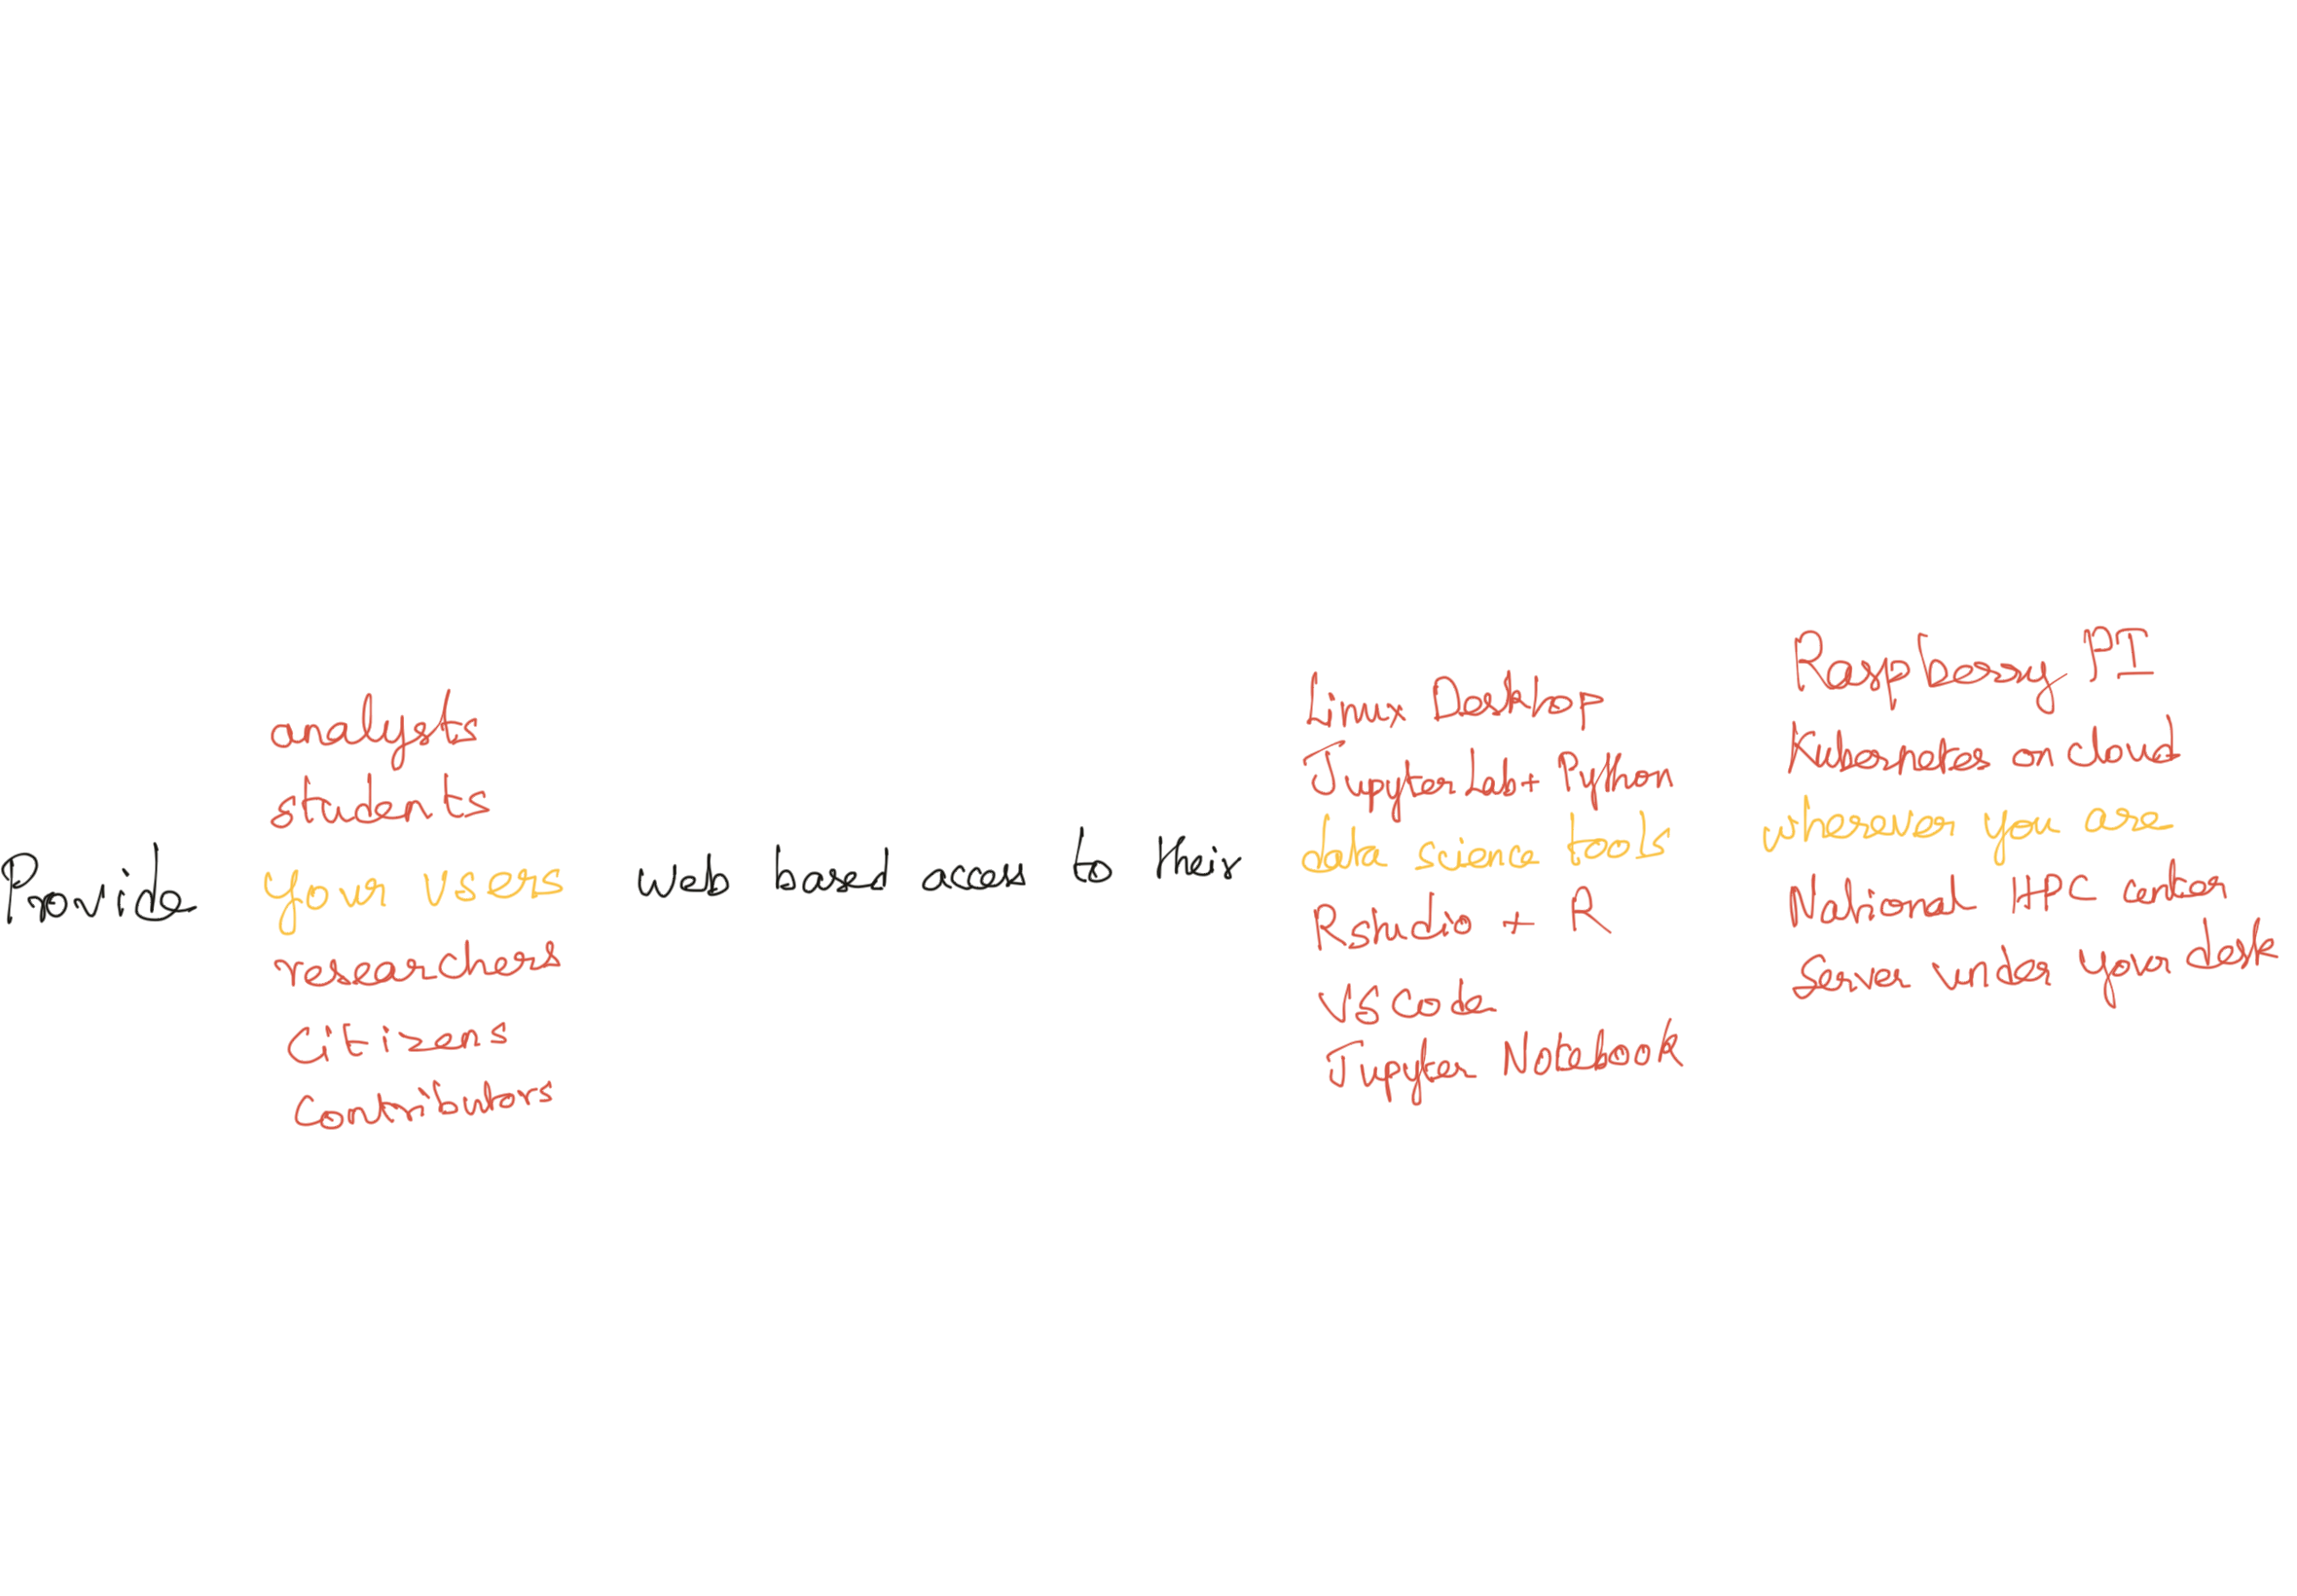 Provide
analysts
students
your users
researchers
Citizens
Contributors
web based access to their
Linux Desktop
Jupyter Lab + Python
data science tools
Rstudio + R
VS Code
Jupyter Notebook
Raspberry PI
Kubernetes on cloud
wherever you are
National HPC center
Server under your desk